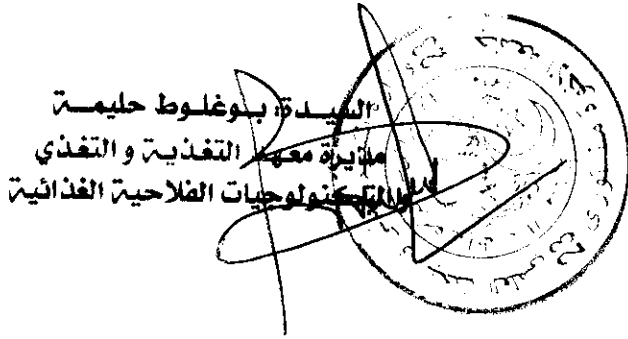 السيدة: بوغلوط حليمة
مديرة معهد التغذية و التغذي
والتكنولوجيات الفلاحية الغذائية